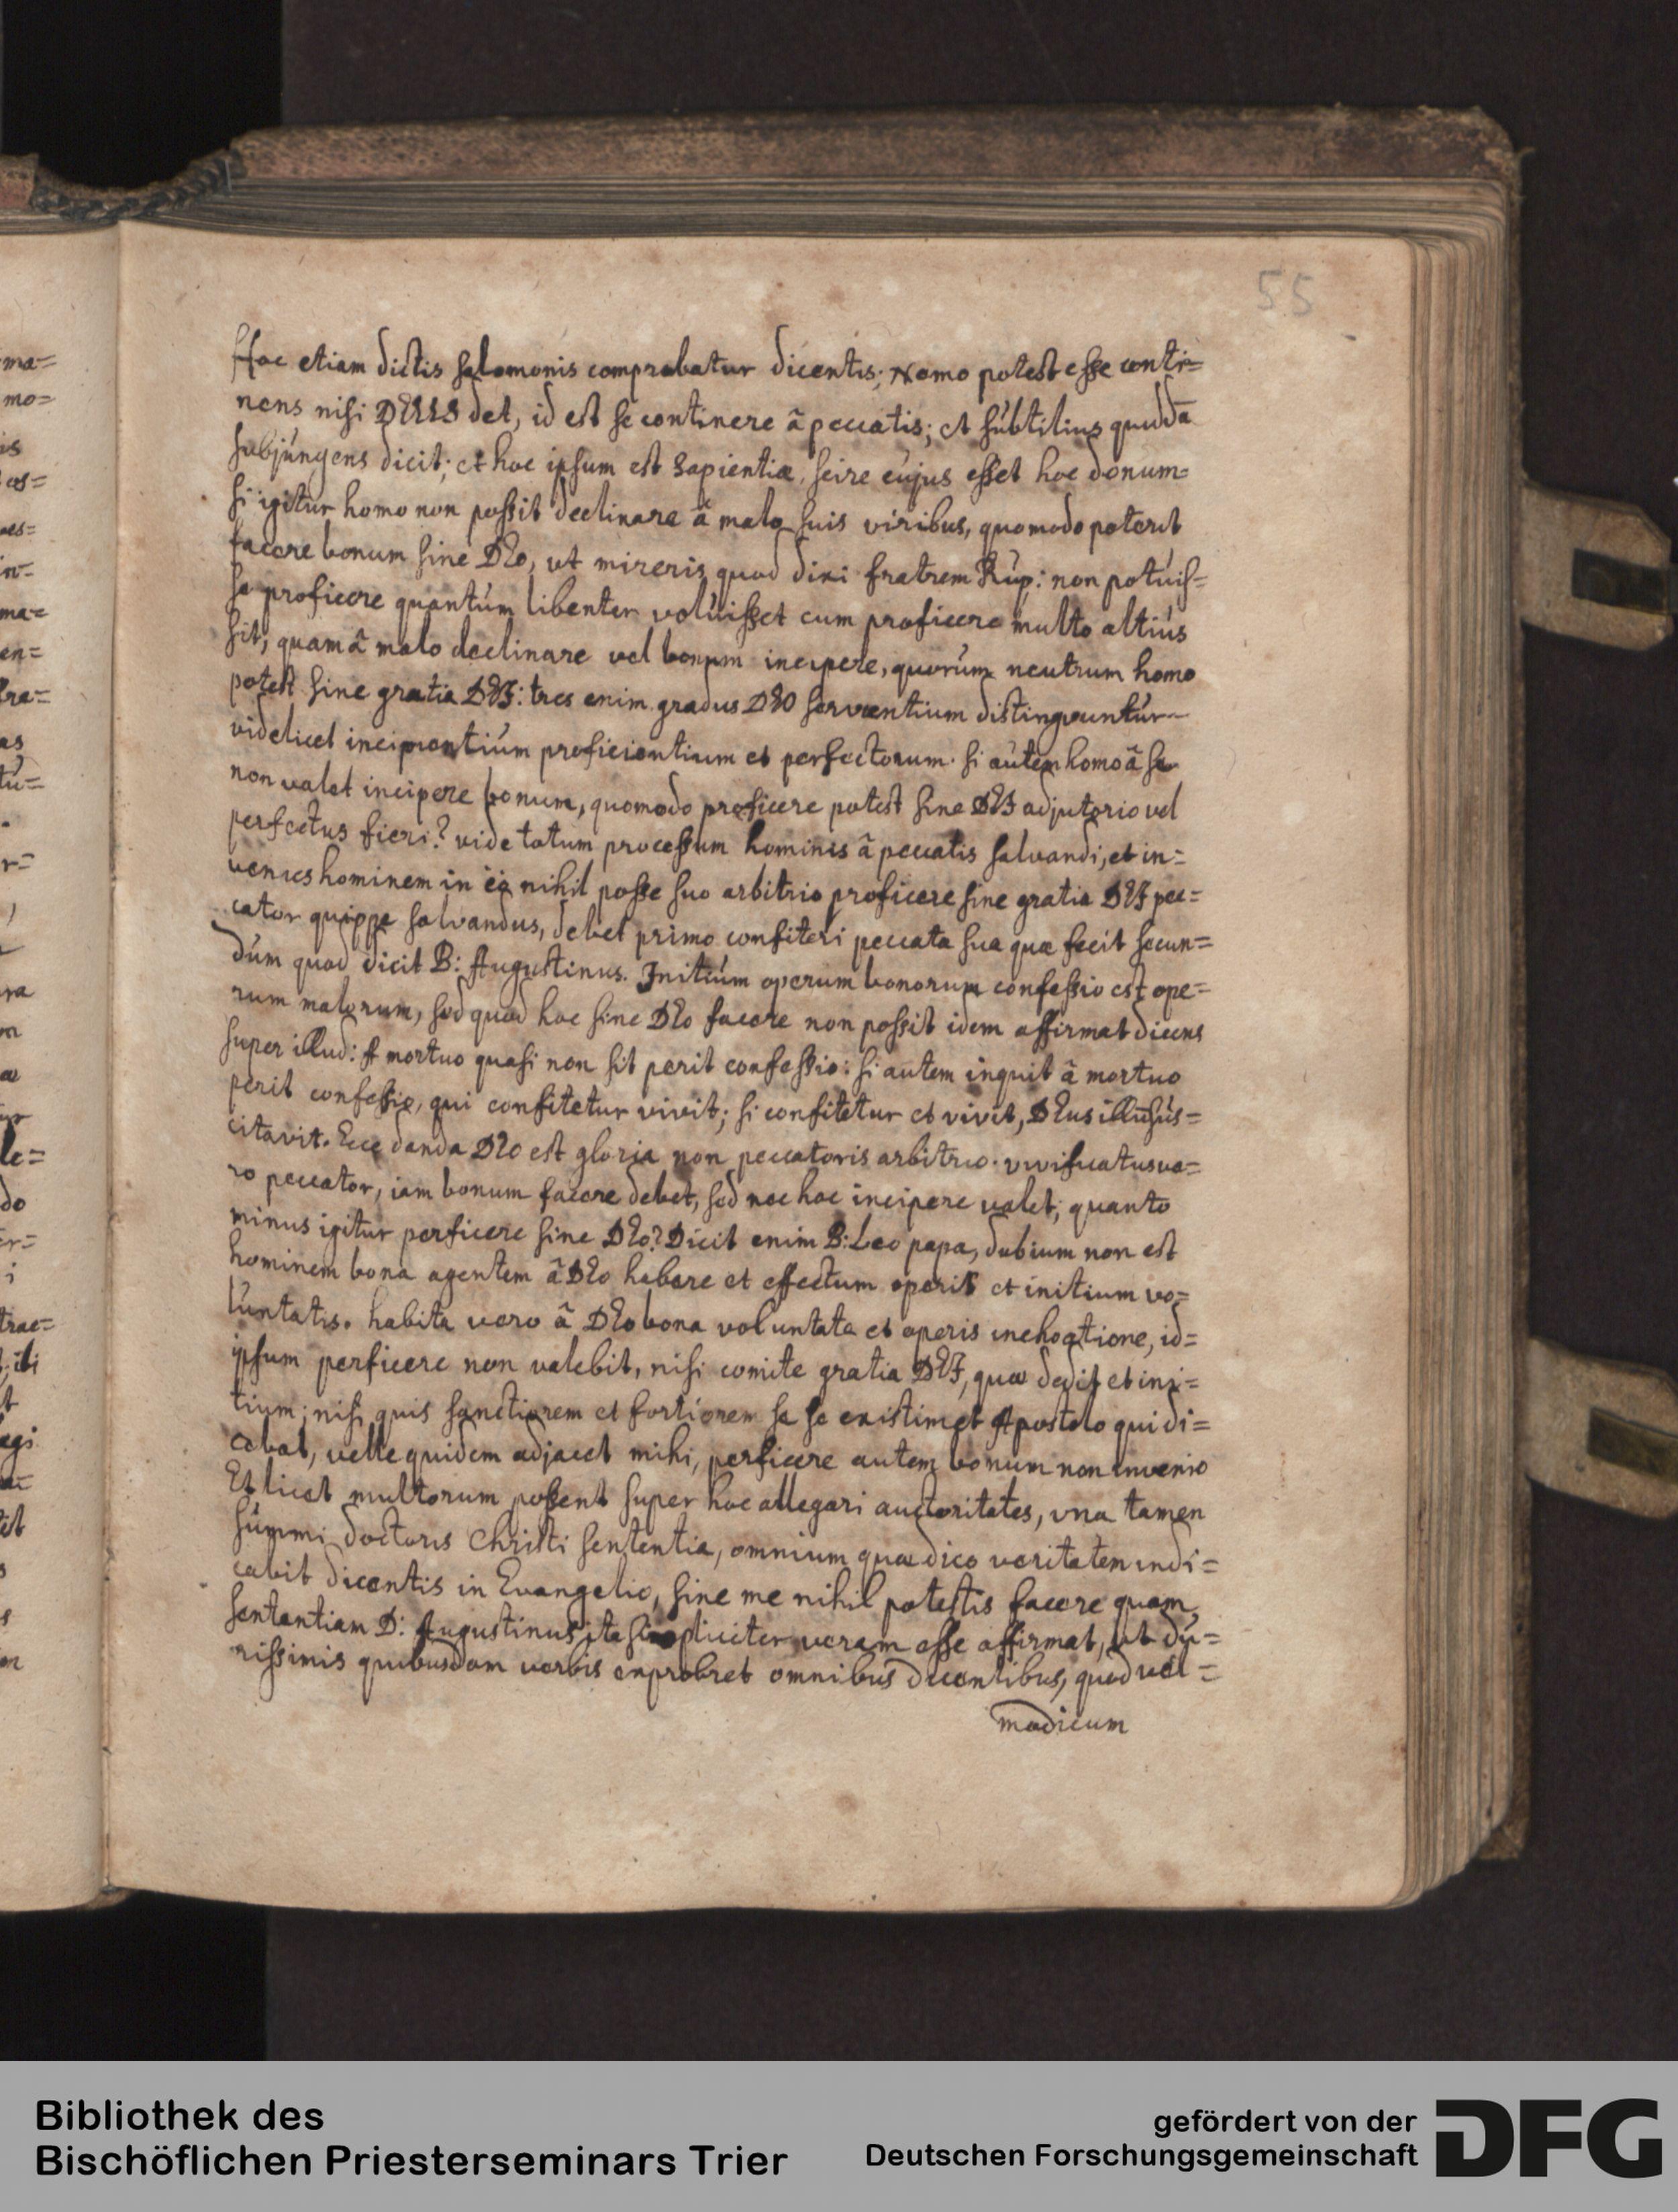 55
Hoc etiam dictis Salomonis comprobatur dicentis; Nemo potest esse conti=
nens nisi DEUS det, id est se continere â peccatis; et súbtilius quoddā
subjúngens dicit; et hoc ipsum est Sapientiæ, scire cújus esset hoc donum=
si igitur homo non possit declinare â malo suis viribus, quomodo poterit
facere bonum sine DEo, ut mireris quod dixi fratrem Rup: non potúis=
se proficere quantúm libenter volúisset cum proficere multo altiús
sit, quam â malo declinare vel bonum incipere, quorúm neutrum homo
potest sine gratia DEI: tres enim gradus DEO servientium distinguuntúr
videlicet incipientiúm proficientium et perfectorum. si aútem homo â se
non valet incipere bonum, quomodo proficere potest sine DEI adjutorio vel
perfectus fieri? vide totum processum hominis â peccatis salvandi, et in=
venies hominem in eo nihil posse suo arbitrio proficere sine gratia DEI pec=
cator quippe salvandus, debet primo confiteri peccata sua quæ fecit secun=
dúm quod dicit B: Augustinus. Initiúm operum bonorum confessio est ope=
rum malorum, sed quod hoc sine DEo facere non possit idem affirmat dicens
super illud: A mortuo quasi non sit perit confessio: si autem inquit â mortuo
perit confessio, qui confitetur vivit; si confitetur et vivit, DEus illū sús=
citavit. Ecce danda DEO est gloria non peccatoris arbitrio. vivificatus ve=
ro peccator, iam bonum facere debet, sed nec hoc incipere valet; quanto
minus igitur perficere sine DEo? Dicit enim B: Leo papa, dubium non est
hominem bona agentem â DEo habere et effectum operis et initium vo=
lúntatis. habita vero â DEo bona voluntate et operis inchoatione, id=
ipsum perficere non valebit, nisi comite gratia DEI, quæ dedit et ini=
tium; nisi quis sanctiorem et fortiorem se se existimet Apostolo qui di=
cebat, velle quidem adjacet mihi, perficere autem bonum non invenio
Et licet multorum possent super hoc allegari auctoritates, una tamen
súmmi doctoris Christi sententia, omnium quæ dico veritatem indi=
cabit dicentis in Evangelio, sine me nihil potestis facere quam
sententiam D: Augustinus ita simpliciter veram esse affirmat, ut dú=
rissimis quibusdam verbis exprobret omnibús dicentibus, quod vel=
modicum
ma=
mo=
is
es=
in=
ma=
en=
as
tú=
r=
ra
le=
do
er=
i
trac=
egi
Bibliothek des
Bischöflichen Priesterseminars Trier
gefördert von der
Deutschen Forschungsgemeinschaft
DFG